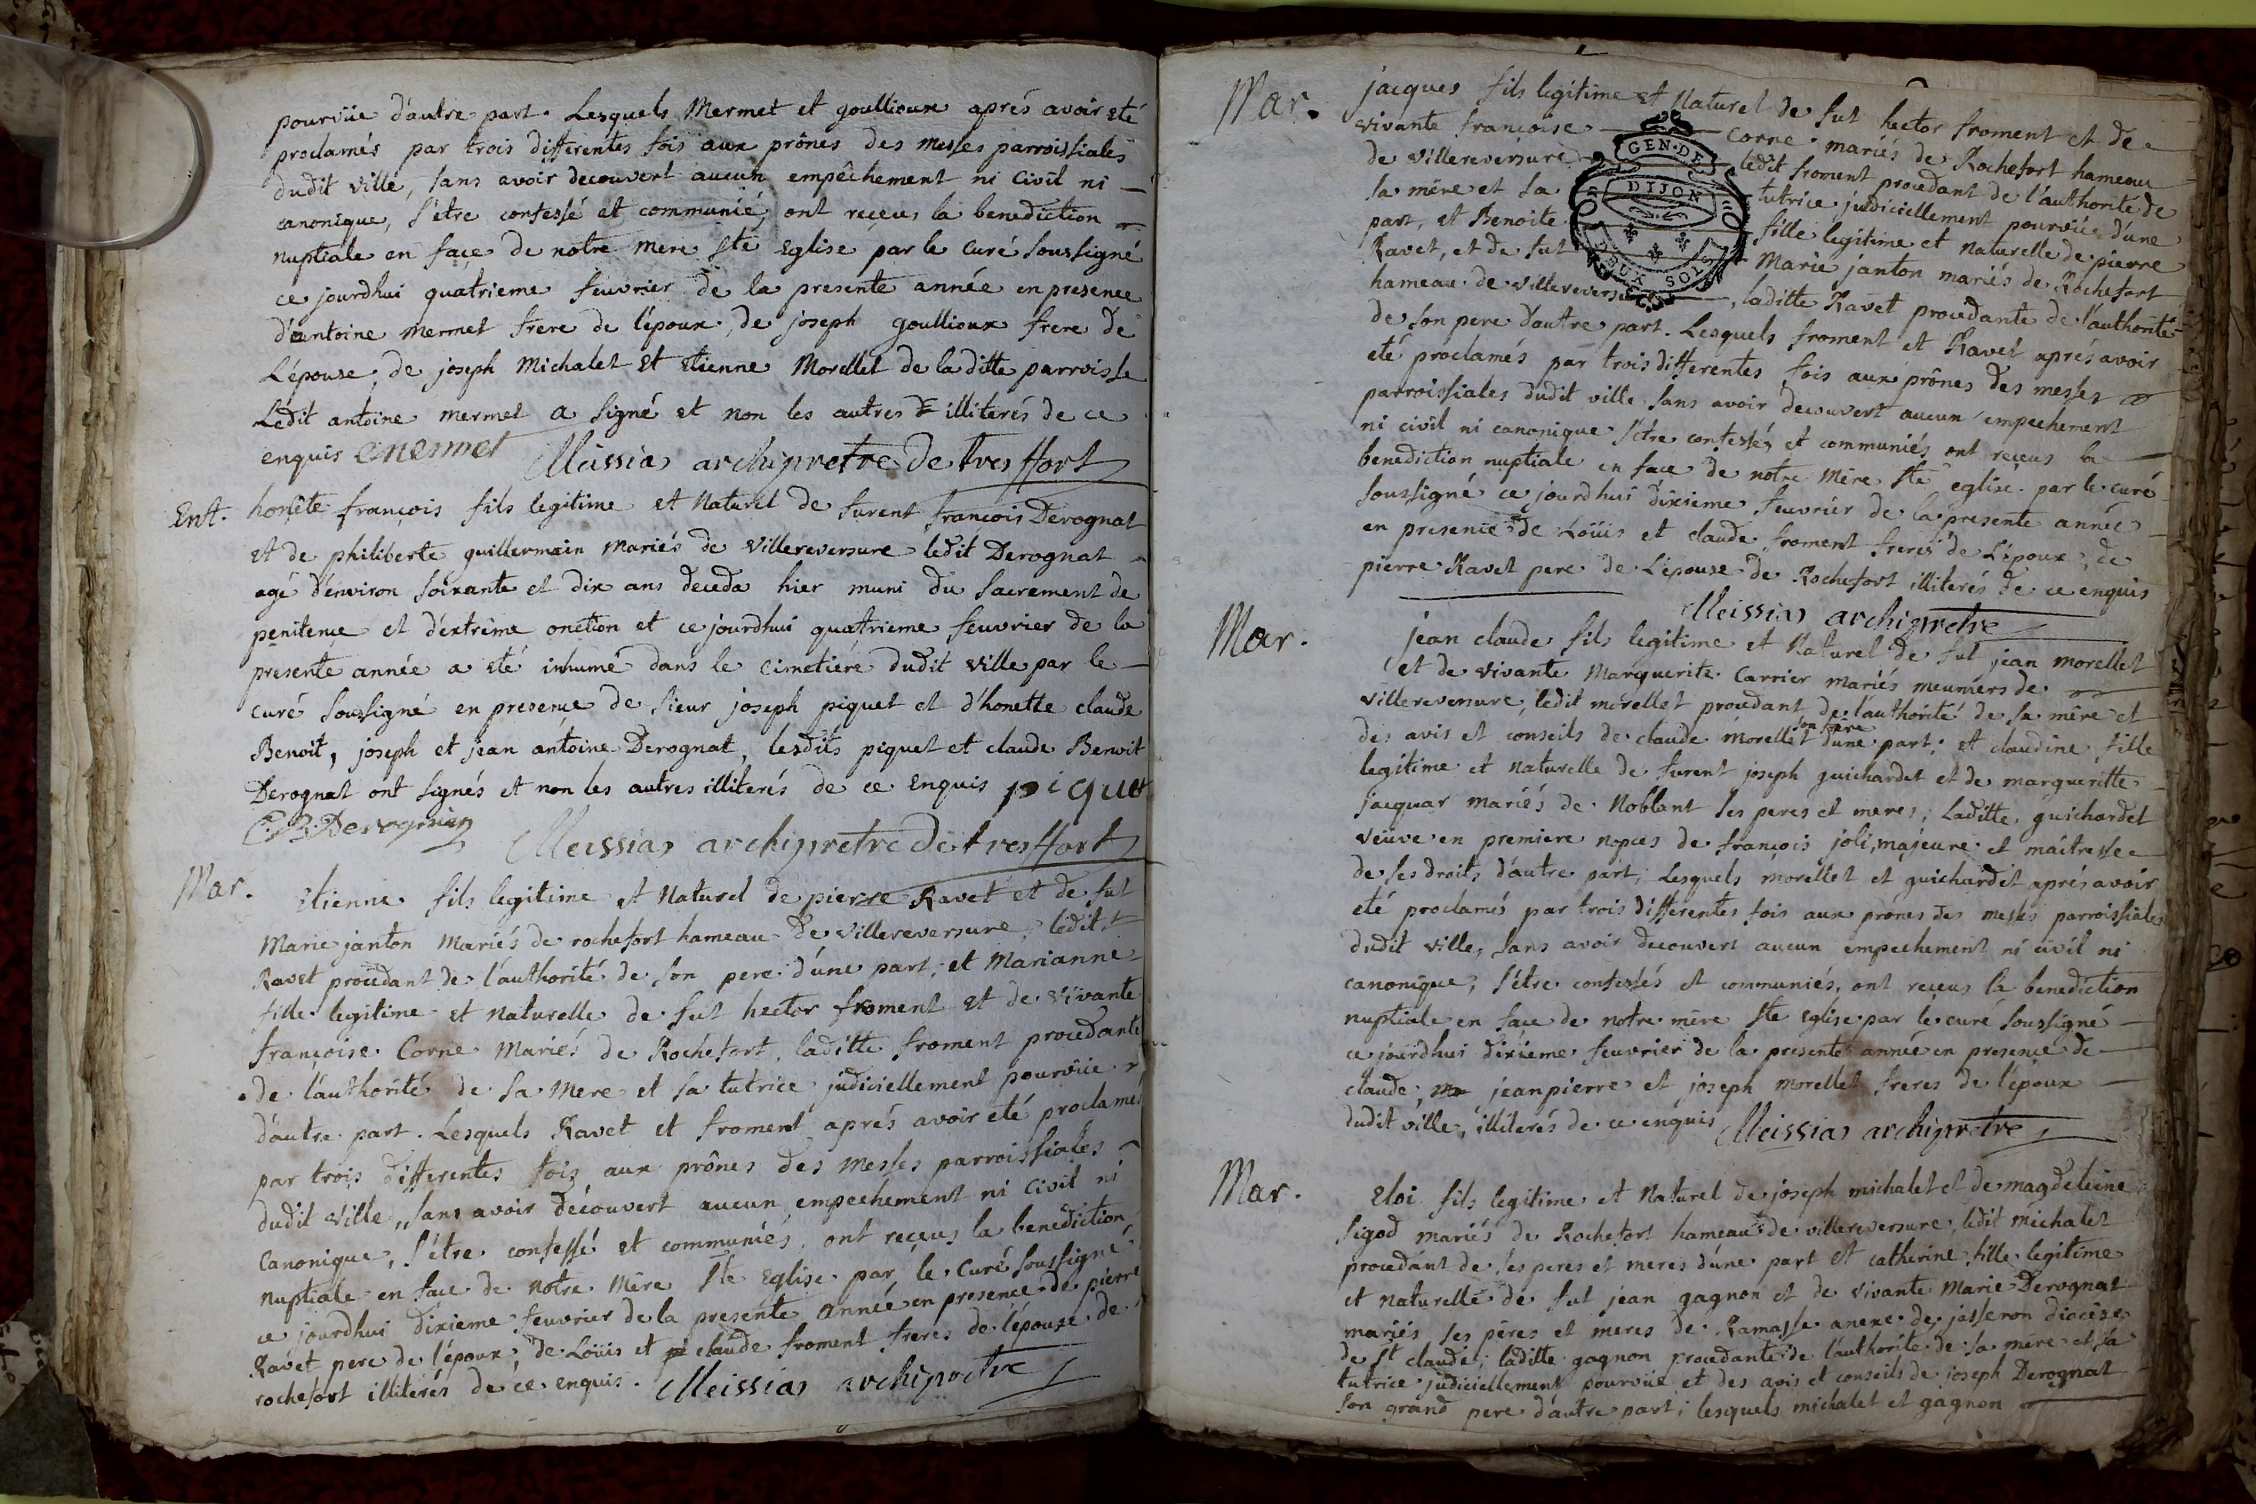 pourvüe d'autre part. Lesquels Mermet et goullioux aprés avoir eté
proclamés par trois differentes fois aux prônes des messes parroissiales
dudit ville, sans avoir decouvert aucun empêchement ni civil ni
canonique, s'etre confessé et communié, ont reçeus la benediction
nuptiale en façe de notre mere ste Eglise par le curé soussigné
ce jourdhui quatrieme feuvrier de la presente année en presence
d'antoine mermet frere de l'époux, de joseph goullioux frere de
L'épouse, de joseph Michalet et Etienne Morellet de laditte parroisse
Ledit antoine mermet a signé et non les autres illiterés de ce
enquis Mermet Meissias archipretre de treffort
Ent. honête françois fils legitime et Naturel de furent francois Derognat
et de philiberte guillermain mariés de villereversure ledit Derognat
agé d'environ soixante et dix ans deceda hier muni du sacrement de
penitence et d'extrême onction et ce jourdhui quatrieme feuvrier de la
presente année a eté inhumé dans le cimetiére dudit ville par le
curé soussigné en presence de sieur joseph piquet et d'honette claude
Benoit, joseph et jean antoine Derognat, lesdits piquet et claude Benoit
Derognat ont signés et non les autres illiterés de ce enquis piquet
C.B. Derognat Meissias archipretre de treffort
Mar. Etienne fils legitime et Naturel de pierre Ravet et de fut
Marie janton mariés de rochefort hameau de villereversure, ledit
Ravet procedant de l'authorité de son pere d'une part, et Marianne
fille legitime et naturelle de fut hector froment et de vivante
françoise Corne mariés de Rochefort, laditte froment procedante
de l'authorité de sa mere et sa tutrice judiciellement pourvüe
d'autre part. Lesquels Ravet et froment aprés avoir eté proclamés
par trois differentes fois aux prônes des messes parroissiales
dudit ville, sans avoir découvert aucun empechement ni civil ni
canonique, s'étre confessé et communiés, ont reçeus la benediction
nuptiale en face de notre mêre ste Eglise par le curé soussigné
ce jourdhui dixieme feuvrier de la presente année en presence de pierre
Ravet pere de l'époux, de Loüis et claude froment freres de l'épouse de
rochefort illiterés de ce enquis. Meissias archipretre
Mar. jacques fils legitime et naturel de fut hector froment et de
vivante françoise Corne mariés de Rochefort hameau
de villereversure ledit froment procedant de l'authorité de
sa mêre et sa tutrice judiciellement pourvüe d'une
part, et Benoite fille legitime et naturelle de pierre
Ravet, et de fut Marie janton mariés de Rochefort
hameau de villereversure, laditte Ravet procedante de l'authorité
GEN. DE
DIJON
DEUX SOLS
de son pere d'autre part. Lesquels froment et Ravet aprés avoir
eté proclamés par trois differentes fois aux prônes des messes
parroissiales dudit ville sans avoir decouvert aucun empechement
ni civil ni canonique s'étre confessés et communiés ont reçeus la
benediction nuptiale en face de notre mêre ste eglise par le curé
soussigné ce jourdhui dixieme feuvrier de la presente année
en presence de Loüis et claude froment freres de l'époux, de
pierre Ravet pere de l'épouse de Rochefort illiterés de ce enquis
Meissias archipretre
Mar. jean claude fils legitime et Naturel de fut jean morellet
et de vivante Marguerite Carrier mariés meuniers de
villereversure, ledit morellet procedant de l'authorité de sa mêre et
son frere
des avis et conseils de claude morellet d'une part; et claudine fille
legitime et naturelle de furent joseph guichardet et de margueritte
jacquar mariés de Noblant ses peres et meres; Laditte guichardet
veüve en premiere nopces de françois joli, majeure et maîtresse
de ses droits d'autre part; Lesquels morellet et guichardet aprés avoir
eté proclamés par trois differentes fois aux prônes des messes parroissiales
dudit ville, sans avoir decouvert aucun empechement ni civil ni
canonique, s'étre confessés et communiés, ont reçeus la benediction
nuptiale en face de notre mêre ste Eglise par le curé soussigné
ce jourdhui dixieme feuvrier de la presente année en presence de
claude, jean pierre et joseph morellet freres de l'époux
dudit ville, illiterés de ce enquis Meissias archipretre
Mar. Eloi fils legitime et Naturel de joseph michalet et de magdeleine
sigod mariés de Rochefort hameau de villereversure, ledit michalet
procedant de ses peres et meres d'une part et catherine fille legitime
et naturelle de fut jean gagnon et de vivante Marie Derognat
mariés ses pêres et meres de Ramasse anexe de jasseron diocèse
de st claude; laditte gagnon procedante de l'authorité de sa mere et sa
tutrice judiciellement pourvüe et des avis et conseils de joseph Derognat
son grand pere d'autre part; lesquels michalet et gagnon